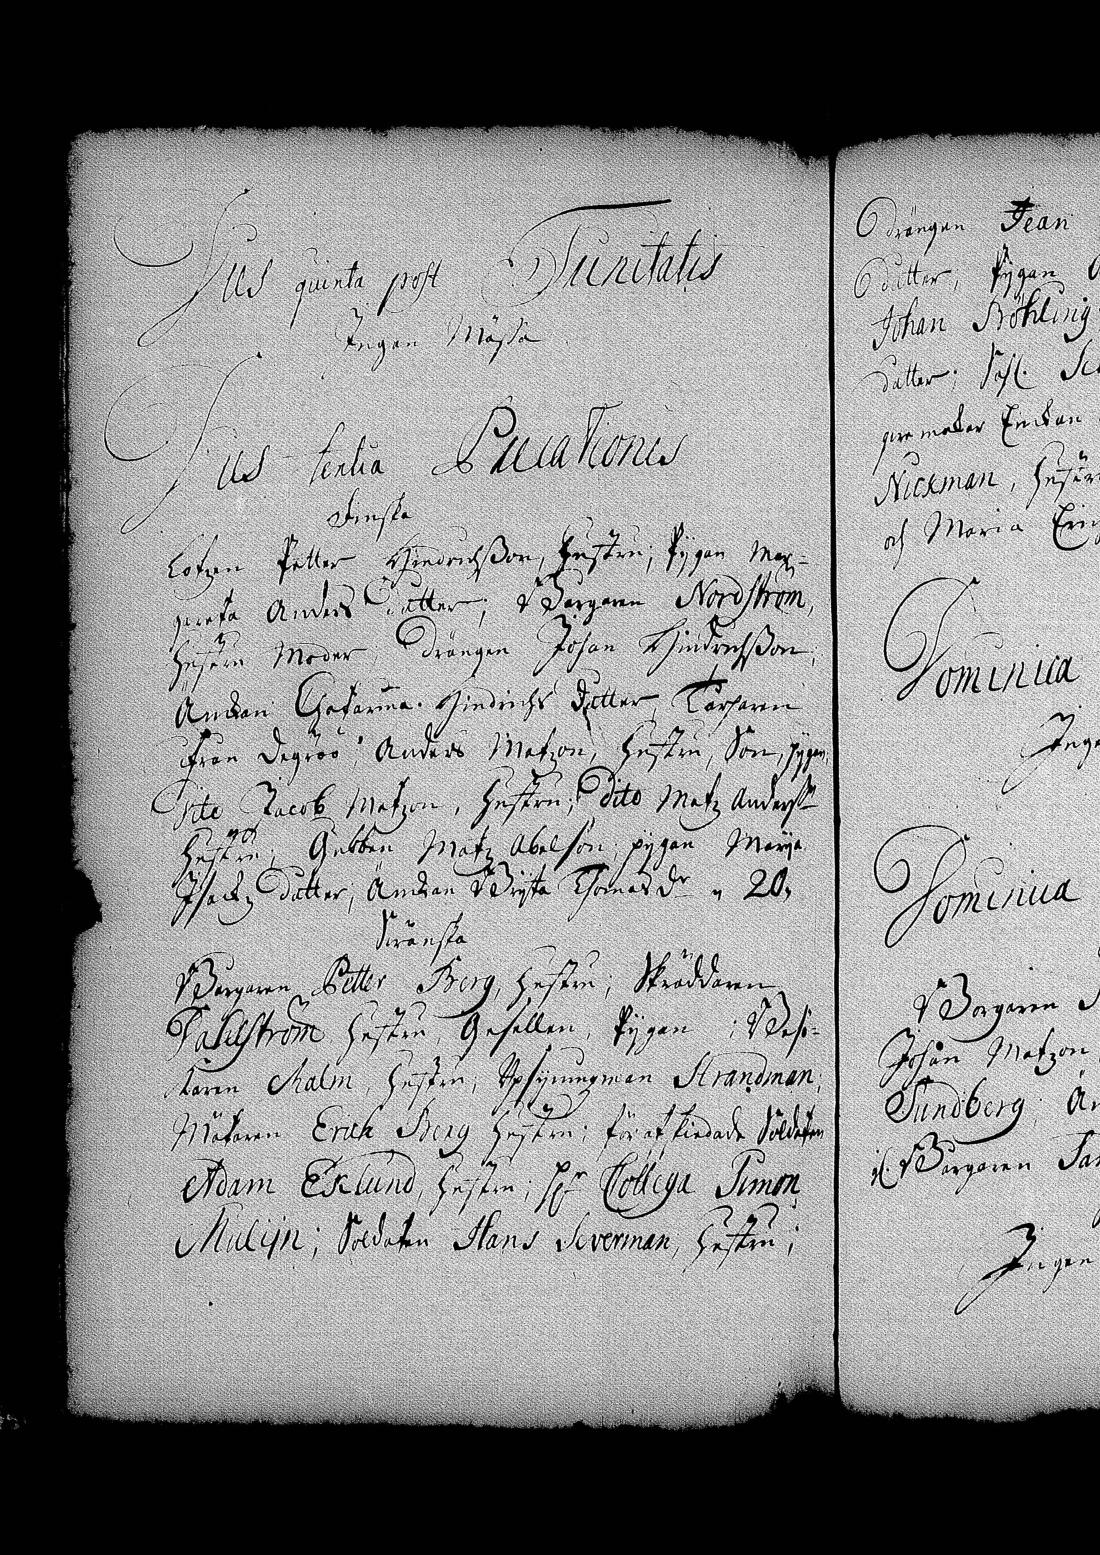 Dus quinta post Trinitatis
Ingen Mässa
Dus tertia Precationis
Finska
Lotzen Petter Hindrichsson, hustru; Pygan Mar-
gareta Anders Dutter; Borgaren Nordström,
hustru Moder, Drängen Johan Hindrichsson;
Ankan Chatarina Hindrichs dutter, Torparen
från Degeröö Anders Matzon, hustru, Son, pygan;
Dito Jacob Matzon, hustru; dito Matz Anderss
hustru; Gubben Matz Abelson pygan Marija
Isacks Dutter; Änkan Brijta Thomas Dr 20,
Swänska
Borgaren Petter Berg, hustru; Skräddaren
Dahlström hustru, Gesellen, Pygan; Besö-
karen Malm, hustru, Upsyningman Strandman;
Mätaren Erich Berg hustru; för afskiedade Soldaten
Adam Eklund, hustru; Hr Collega Simon
Mulijn; Soldaten Hans Severman, hustru;
Drängen Jean
dutter, Pygan
Johan Böhling
dutter; Sahl.
makar Enckan
Nickman, hustru
och Maria Eric
Dominica
Inge
Dominica
Borgaren
Johan Matzon
Sundberg; Än
Borgaren
Ingen